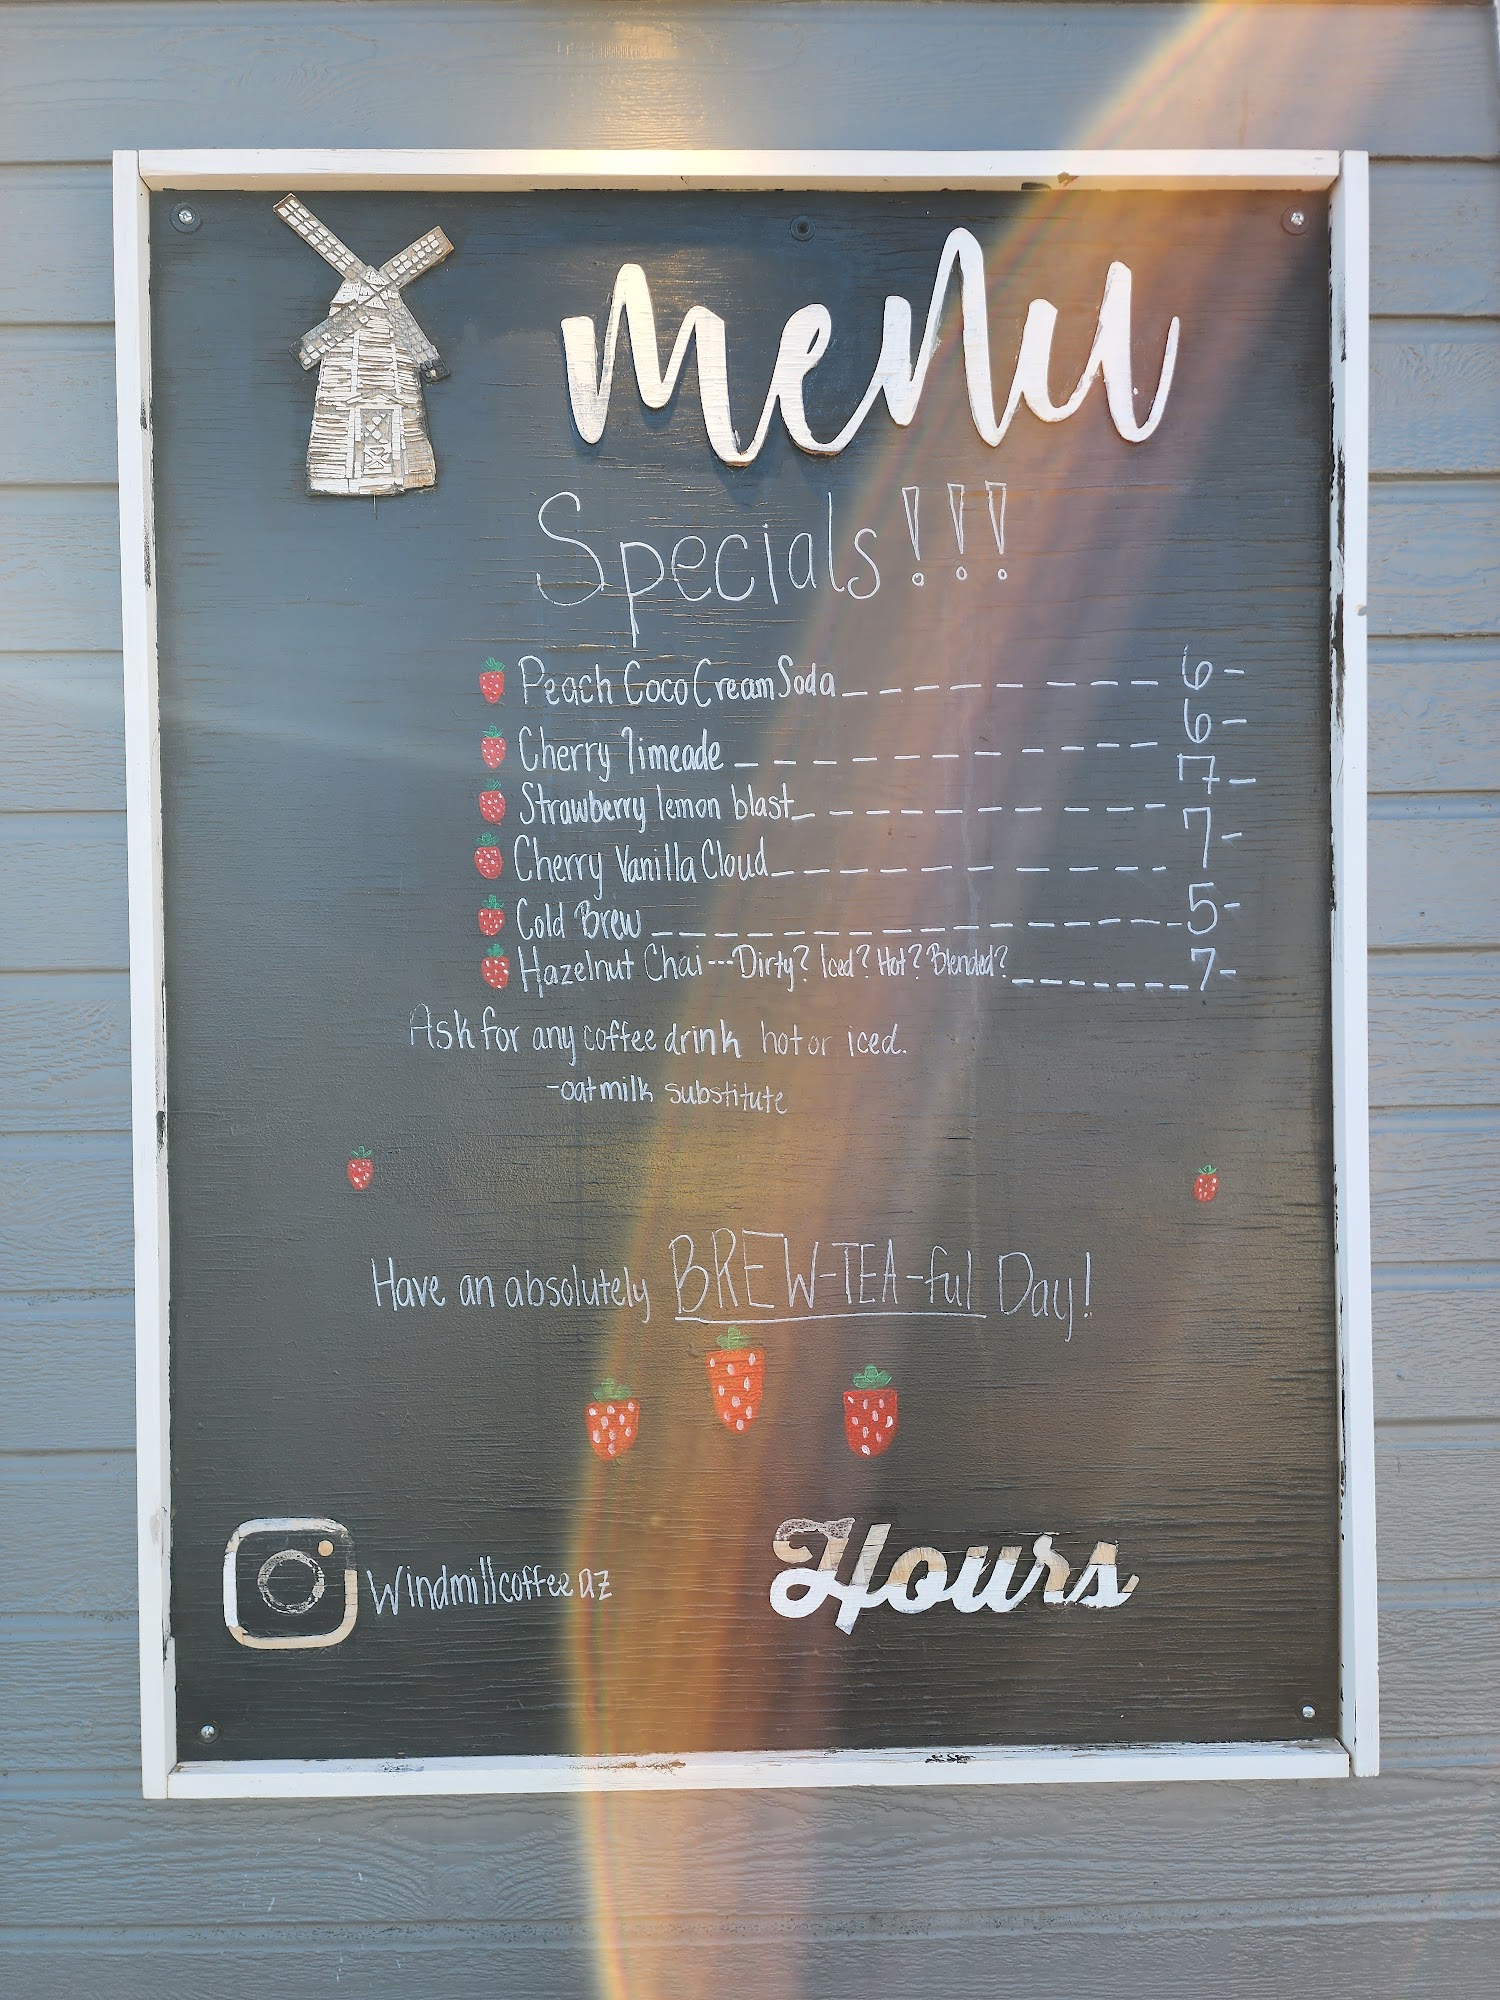 menu
Specials!!!
Peach Coco Cream Soda _ _ _ _ _ _ _ _ _ 6-
Cherry limeade _ _ _ _ _ _ _ _ _ _ _ 6-
Strawberry lemon blast _ _ _ _ _ _ _ _ _ _ 7-
Cherry Vanilla Cloud _ _ _ _ _ _ _ _ _ _ 7-
Cold Brew _ _ _ _ _ _ _ _ _ _ _ _ _ _ _ 5-
Hazelnut Chai---Dirty? Iced? Hot? Blended? _ _ _ _ _ _ _ 7-
Ask for any coffee drink hot or iced.
-oatmilk substitute
Have an absolutely BREW-TEA-ful Day!
Windmillcoffeeaz
Hours